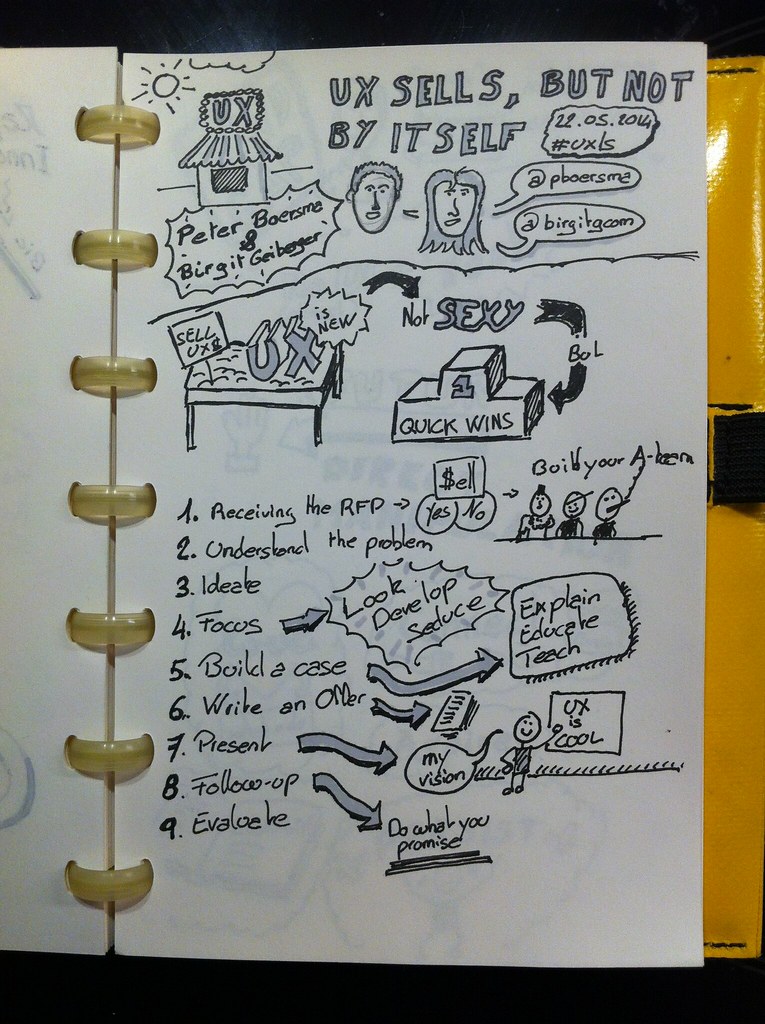 UX
UX SELLS, BUT NOT
BY ITSELF
22.05.2014
#uxls
@pboersma
@birgitgcom
Peter Boersma
&
Birgit Geiberger
SELL
UX$
UX
is
NEW
Not SEXY
But
1
QUICK WINS
1. Receiving the RFP
$ell
Yes No
Build your A-team
2. Understand the problem
3. Ideate
4. Focus
Look
Develop
Seduce
Explain
Educate
Teach
5. Build a case
6. Write an Offer
7. Present
my
vision
UX
is
COOL
8. Follow-up
9. Evaluate
Do what you
promise